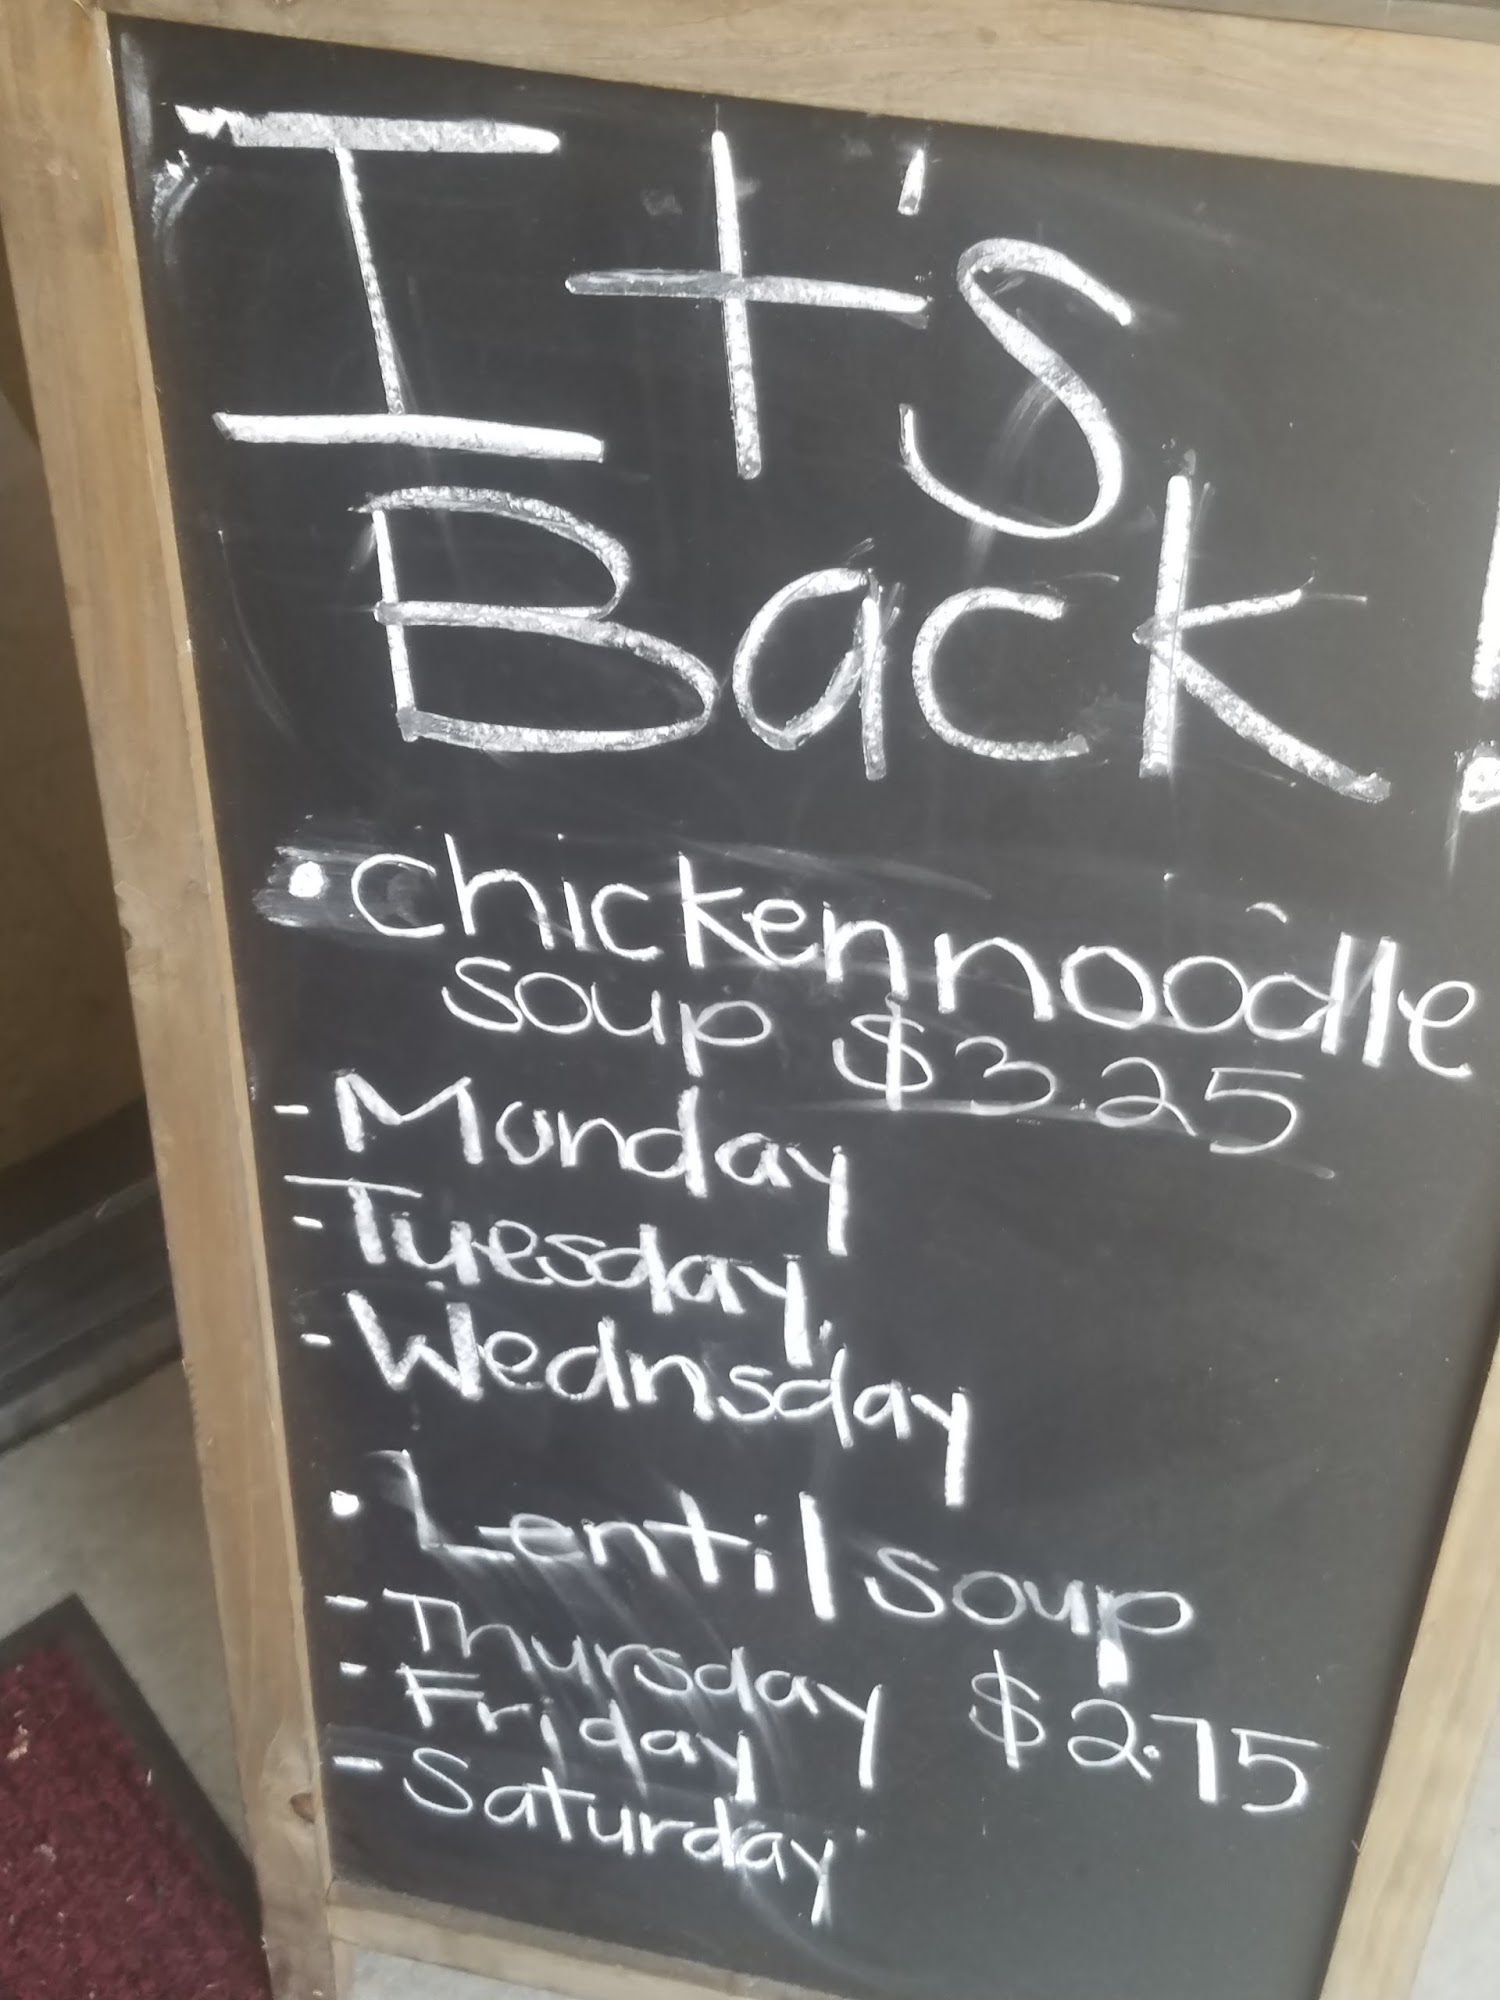 It's
Back!
• Chicken noodle
soup $3.25
- Monday
- Tuesday
- Wednsday
• Lentil soup
- Thursday $2.75
- Friday
- Saturday